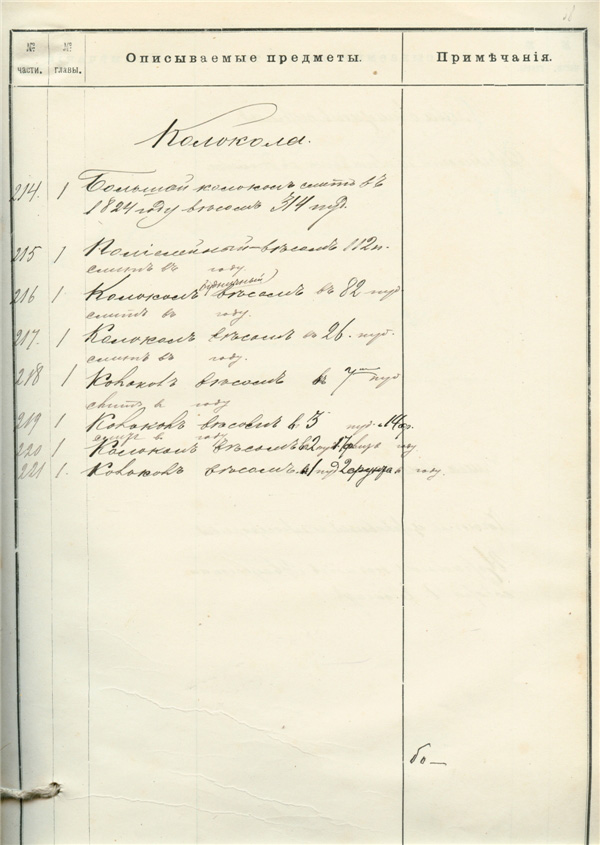 № части. № главы. Описываемые предметы. Примѣчанія.
Колокола.
214. 1 Большой колоколъ слитъ въ
1824 году вѣсомъ 314 пуд.
215 1 вѣсомъ 112 п.
слитъ въ году
будничный
216 1 Колоколъ вѣсомъ въ 82 пуд
слитъ въ году.
217. 1 Колоколъ вѣсомъ въ 26. пуд.
слитъ въ году.
218 1 Колоколъ вѣсомъ въ 7 пуд
слитъ въ году
219 1 Колоколъ вѣсомъ въ 3 пуд. 14 ф.
слитъ въ году
220 1 Колоколъ вѣсомъ въ 2 пуд 17 году
221 1. Колоколъ вѣсомъ въ 1 пуд 2 фунта году.